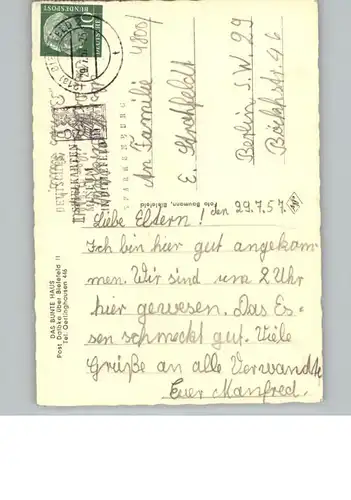 BUNDESPOST
10
DEUTSCHES
SPIELKARTEN
MUSEUM
BIELEFELD
An Familie
E. Grothfeldt
Berlin S.W 29
Foto Baumann, Bielefeld
DAS BUNTE HAUS
Post Dalbke über Bielefeld II
Tel. Oerlinghausen 446
den 29.7.57
Liebe Eltern!
Ich bin hier gut angekom
men. Wir sind um 2 Uhr
hier gewesen. Das Es-
sen schmeckt gut. Viele
Grüße an alle Verwandte
Euer Manfred.